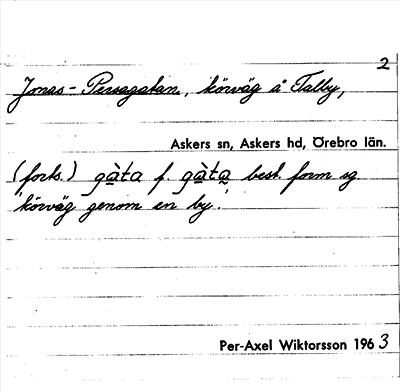 2
Jonas-Persagatan, körväg å Talby,
Askers sn, Askers hd, Örebro län.
(forts.) gàta f. gàta best. form sg
'körväg genom en by'.
Per-Axel Wiktorsson 1963